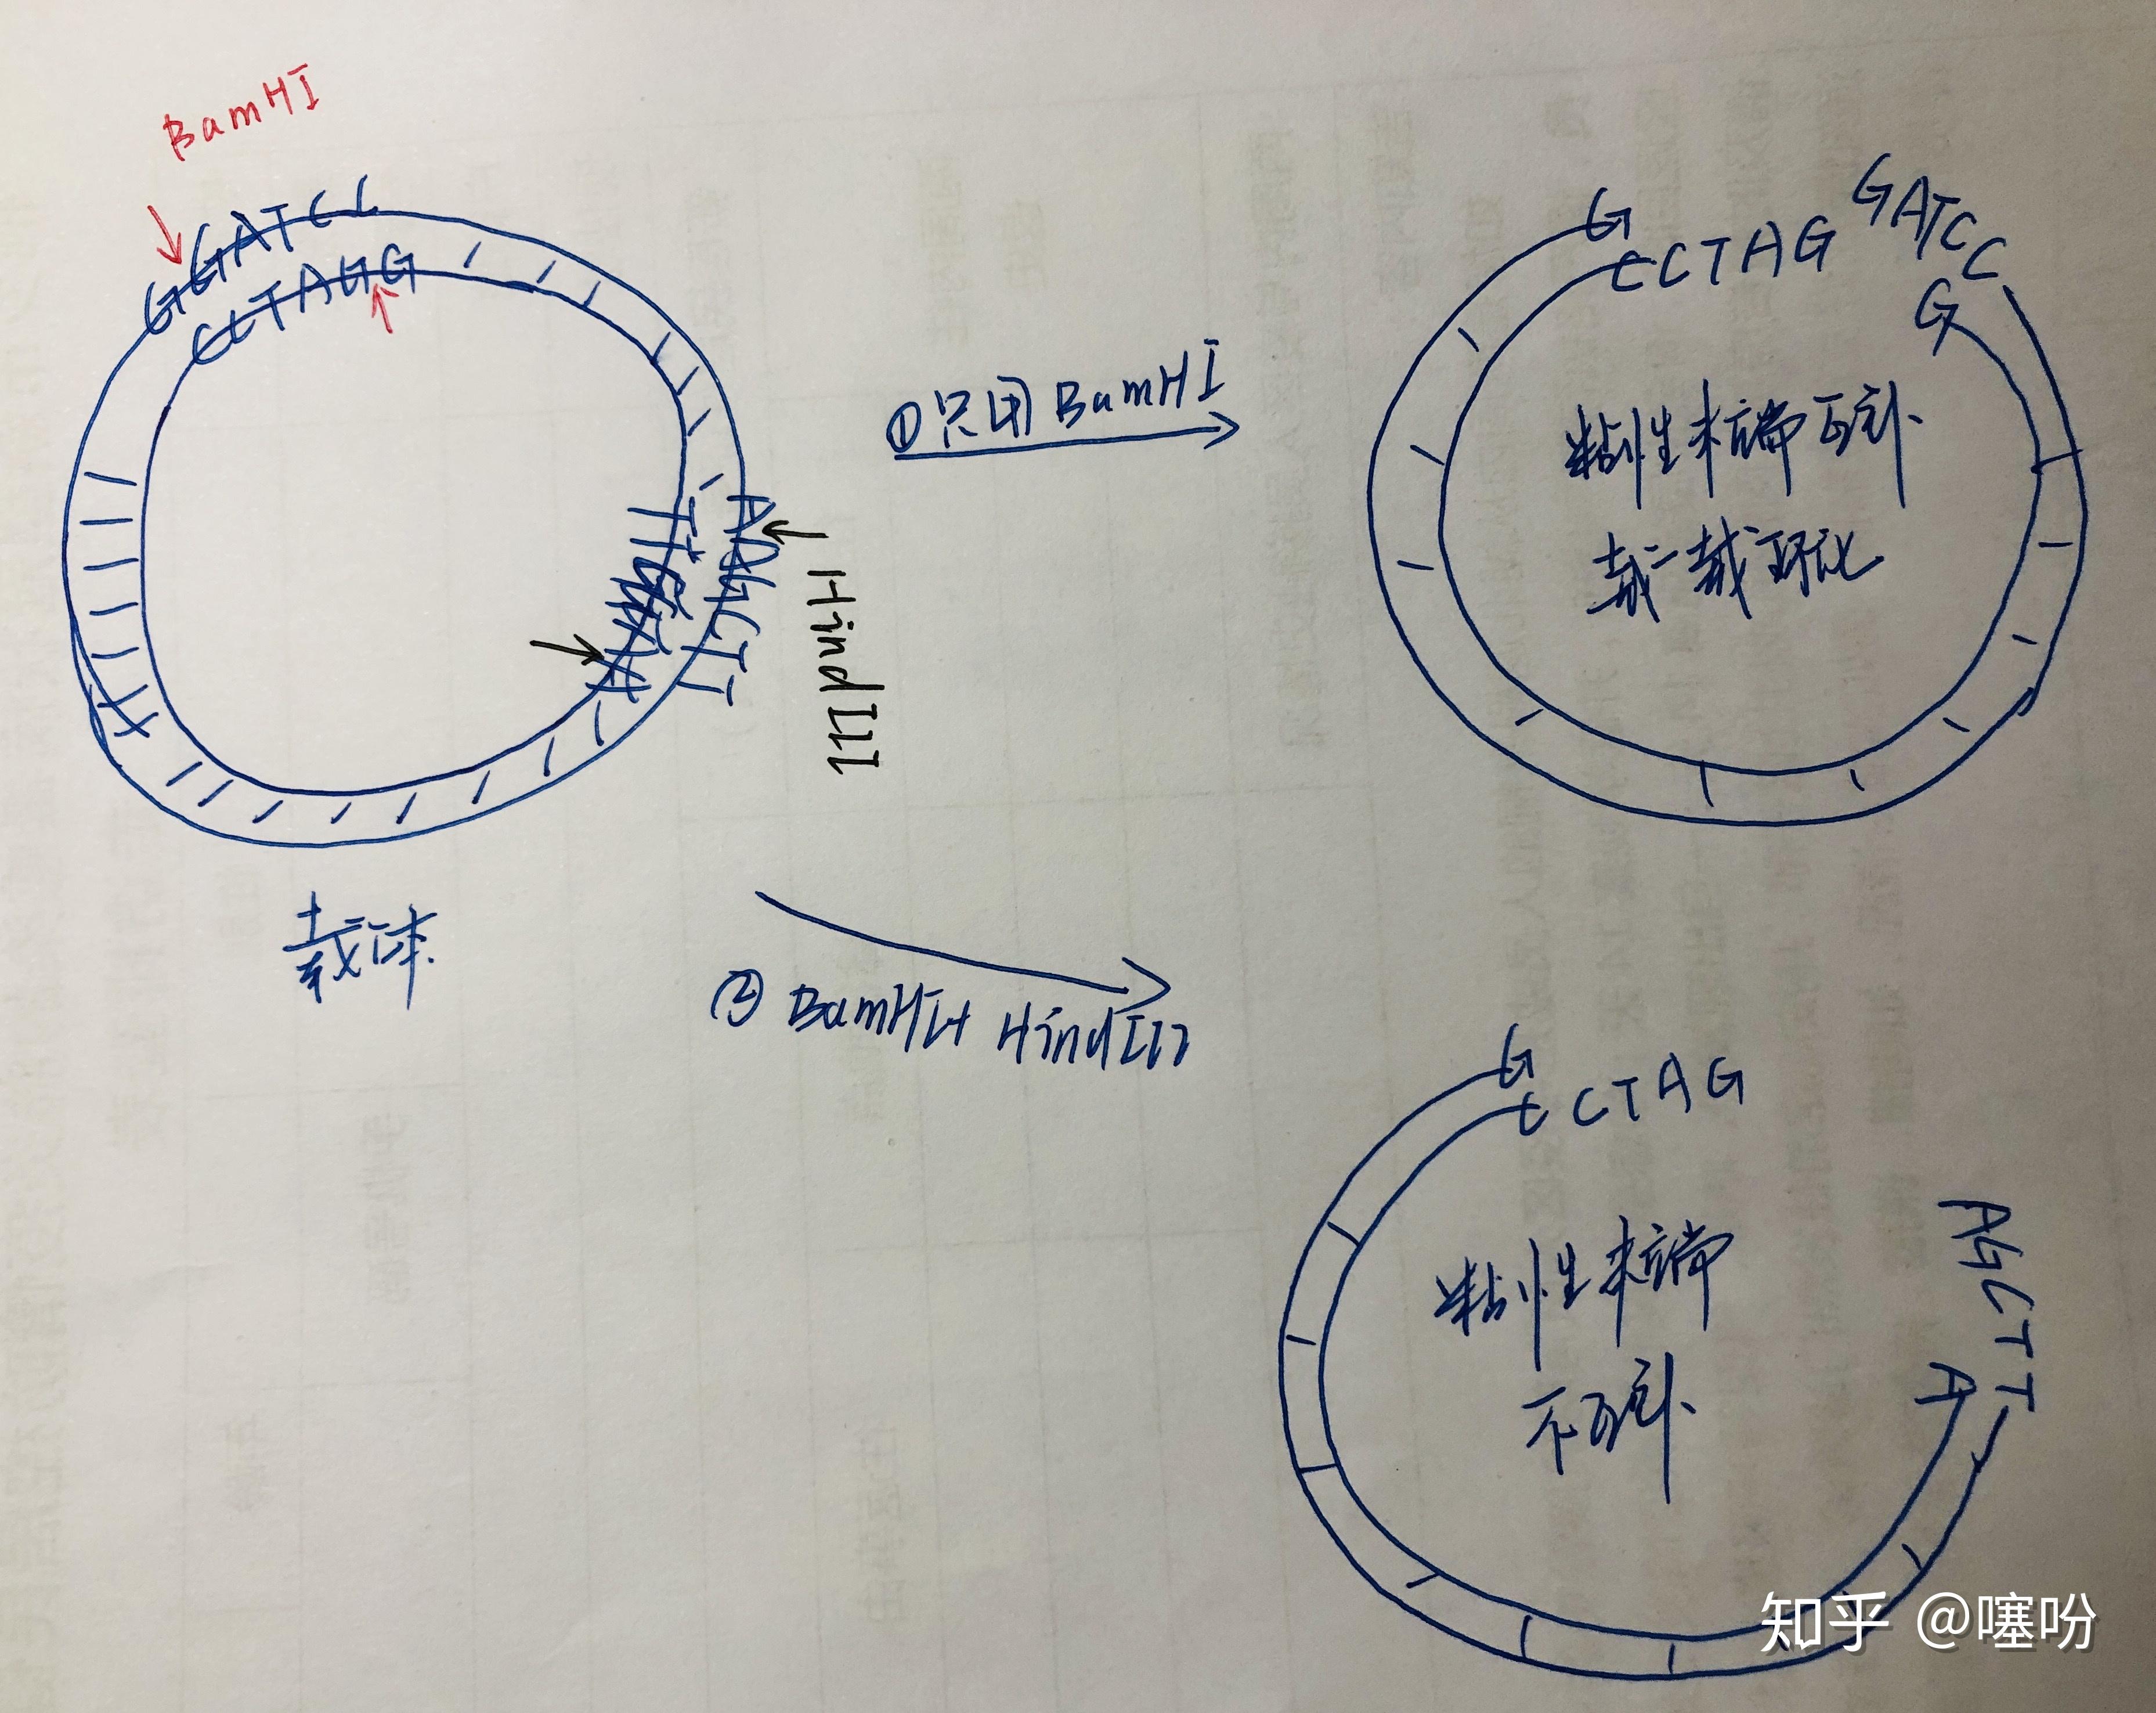 BamHI
GGATCC
CCTAGG
AAGCTT
HindIII
载体
①只用 BamHI
G
CCTAG
GATCC
G
粘性末端互补
载一载环化
② BamHI+ HindIII
G
CCTAG
AGCTT
A
粘性末端
不互补
知乎 @噻吩